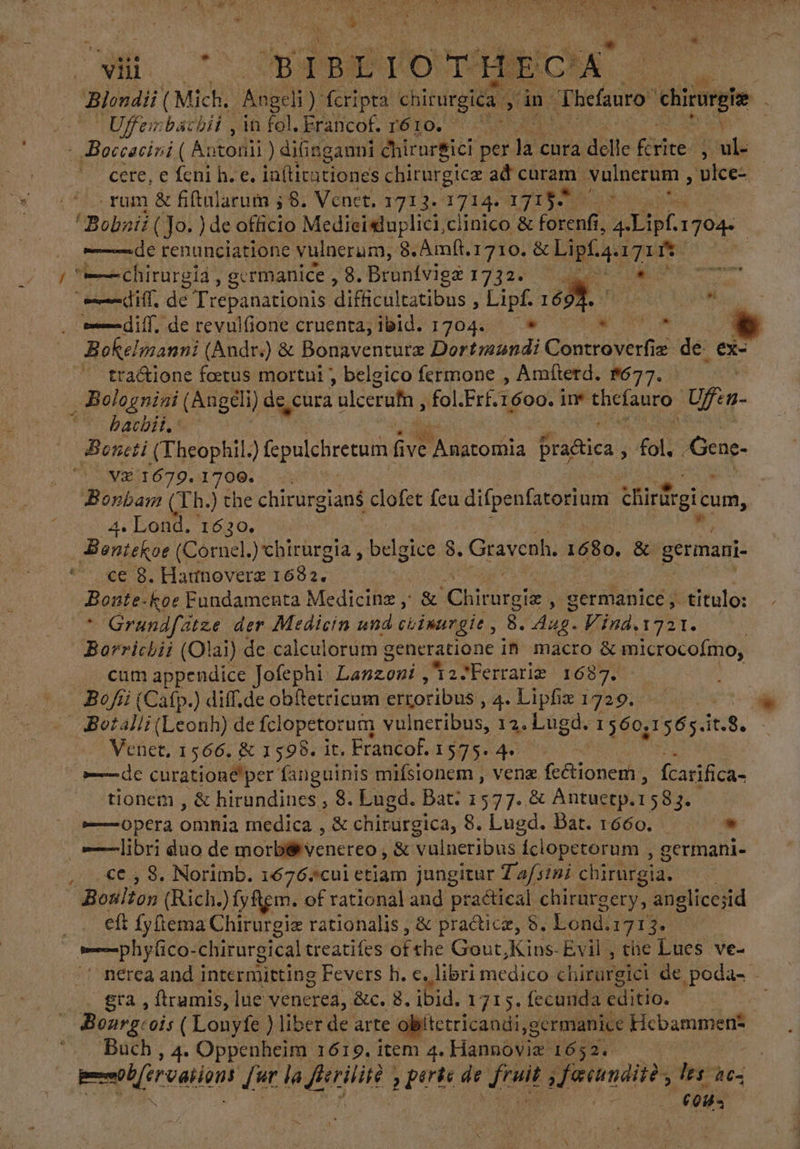 viii BIBLIOTHECA
Blondii (Mich. Angeli) ſcripta chirurgica, in Theſauro chirurgiæ
Uffembachii, in fol. Francof. 1610.
Boccacini (Antonii) diſinganni chirurgici per la cura delle ferite, ul-
cere, e ſeni h. e. inſtitutiones chirurgicæ ad curam vulnerum, ulce-
rum & fiſtularum; 8. Venet. 1713. 1714. 1715.
Bohnii (Jo.) de officio Medici duplici, clinico & forenſi, 4. Lipſ. 1704.
——de renunciatione vulnerum, 8. Amſt. 1710. & Lipſ. 4. 1711.
——chirurgia, germanice, 8. Brunſvigæ 1732.
——diſſ. de Trepanationis difficultatibus, Lipſ. 1694.
——diſſ. de revulſione cruenta, ibid. 1704.
Bokelmanni (Andr.) & Bonaventuræ Dortmundi Controverſiæ de ex-
tractione fœtus mortui, belgico ſermone, Amſterd. 1677.
Bolognini (Angeli) de cura ulcerum, fol. Frf. 1600. in theſauro Uffen-
bachii.
Boneti (Theophil.) ſepulchretum ſive Anatomia practica, fol. Gene-
væ 1679. 1700.
Bonham (Th.) the chirurgians cloſet ſeu diſpenſatorium chirurgicum,
4. Lond. 1630.
Bontekoe (Cornel.) chirurgia, belgice 8. Gravenh. 1680. & germani-
ce 8. Hannoveræ 1682.
Bonte-koe Fundamenta Medicinæ, & Chirurgiæ, germanice, titulo:
Grundſätze der Medicin und chirurgie, 8. Aug. Vind. 1721.
Borrichii (Olai) de calculorum generatione in macro & microcoſmo,
cum appendice Joſephi Lanzoni, 12. Ferrariæ 1687.
Boſii (Caſp.) diſſ. de obſtetricum erroribus, 4. Lipſiæ 1729.
Botalli (Leonh) de ſclopetorum vulneribus, 12. Lugd. 1560. 1565. it. 8.
Venet. 1566. & 1598. it. Francof. 1575. 4.
——de curatione per ſanguinis miſsionem, venæ ſectionem, ſcarifica-
tionem, & hirundines, 8. Lugd. Bat: 1577. & Antuerp. 1583.
——opera omnia medica, & chirurgica, 8. Lugd. Bat. 1660.
——libri duo de morbo venereo, & vulneribus ſclopetorum, germani-
ce, 8. Norimb. 1676. cui etiam jungitur Taſsini chirurgia.
Boulton (Rich.) ſyſtem. of rational and practical chirurgery, anglice; id
eſt ſyſtema Chirurgiæ rationalis, & practicæ, 8. Lond. 1713.
——phyſico-chirurgical treatiſes of the Gout, Kins-Evil, the Lues ve-
nerea and intermitting Fevers h. e. libri medico chirurgici de poda-
gra, ſtrumis, lue venerea, &c. 8. ibid. 1715. ſecunda editio.
Bourgeois (Louyſe) liber de arte obſtetricandi, germanice Hebammen-
Buch, 4. Oppenheim 1619. item 4. Hannoviæ 1652.
——obſervations ſur la ſterilité, perte de fruit, fœcundité, les ac-
cou-